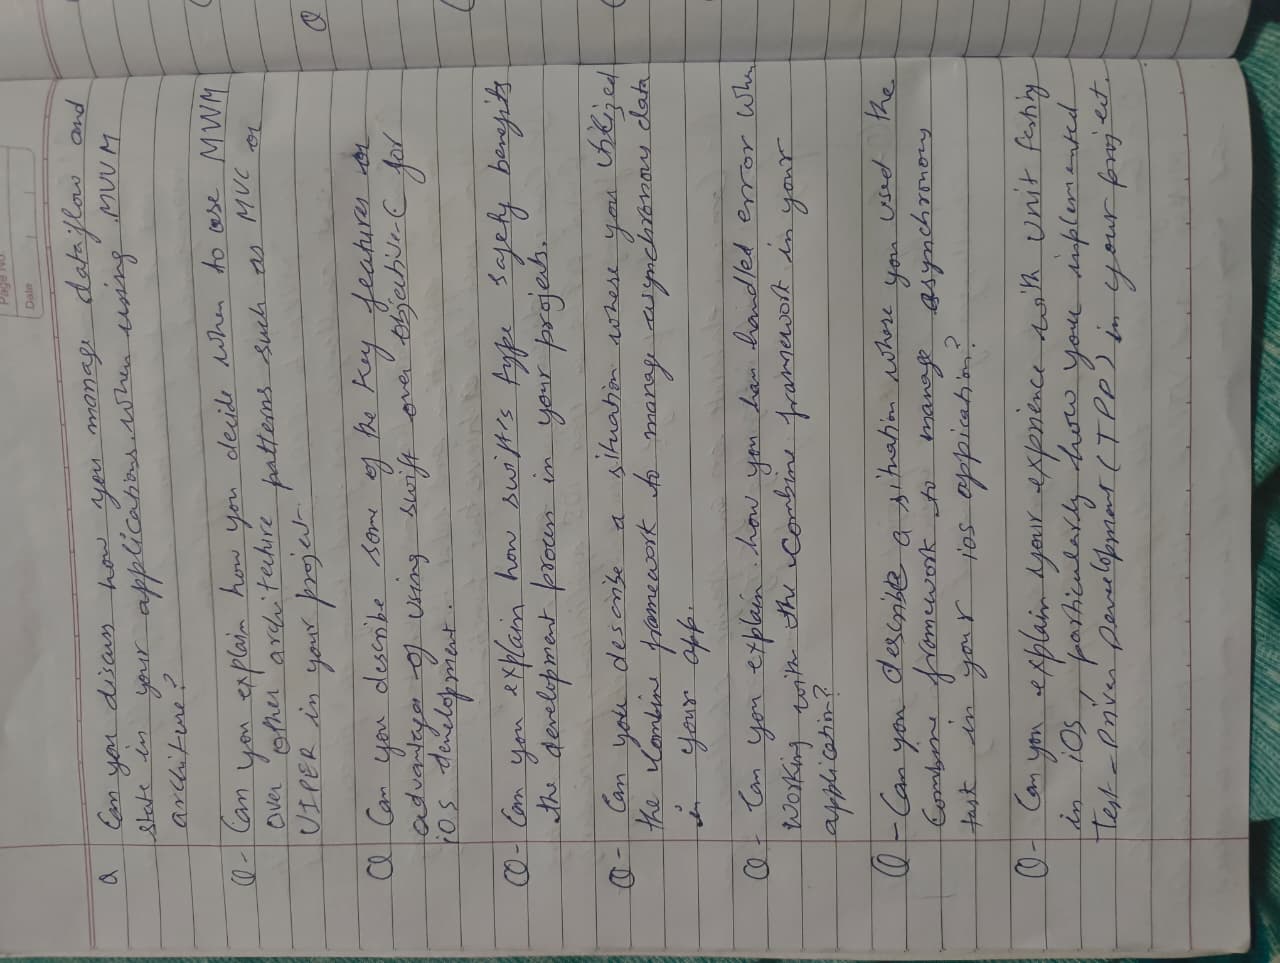 Page No.
Date
Q Can you discuss how you manage dataflow and
state in your applications when using MVVM
architure?
Q- Can you explain how you decide when to use MVVM
over other architecture patterns such as MVC or
VIPER in your project.
Q Can you describe some of the key features or
advantages of using swift over objective-C for
iOS development.
Q- Can you explain how swift's type safety benefits
the development process in your projects.
Q- Can you describe a situation where you utilized
the Combine framework to manage asynchronous data
in your app.
Q- Can you explain how you have handled error when
working with the combine framework in your
application?
Q- Can you describe a situation where you used the
Combine framework to manage asynchronous
task in your ios application?
Q- Can you explain your exprience with unit testing
in iOS, particularly how you implemented
Test-Driven Development (TDD) in your project.
Q